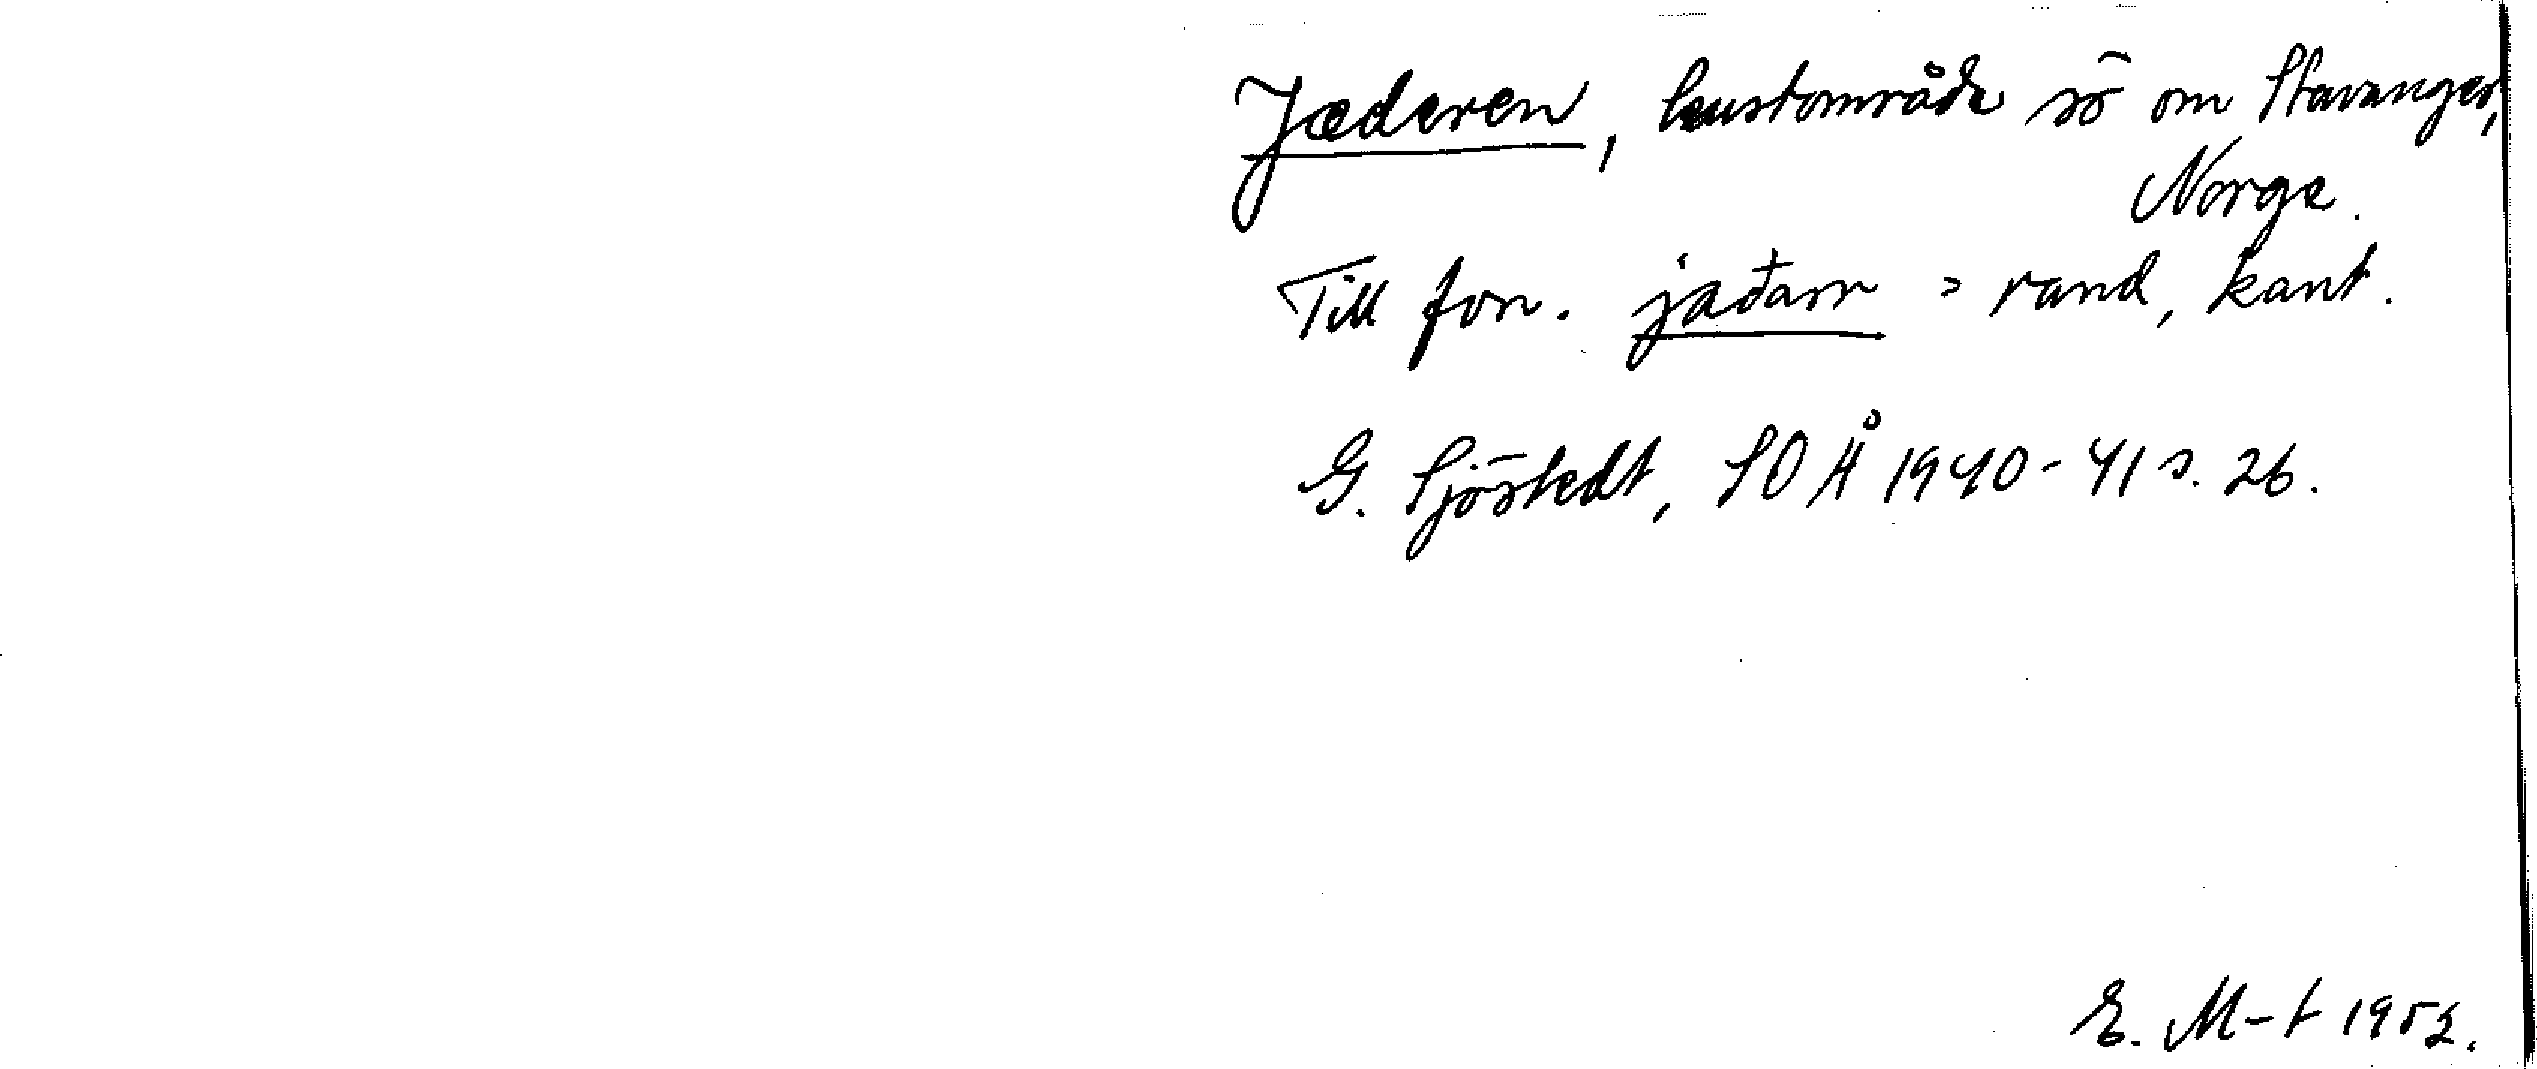 Jæderen, kustområde sö om Stavanger,
Norge.
Till fon. jaðarr = rand, kant.
G. Sjöstedt, SOÅ 1940-41 s. 26.
E. M-t 1952.